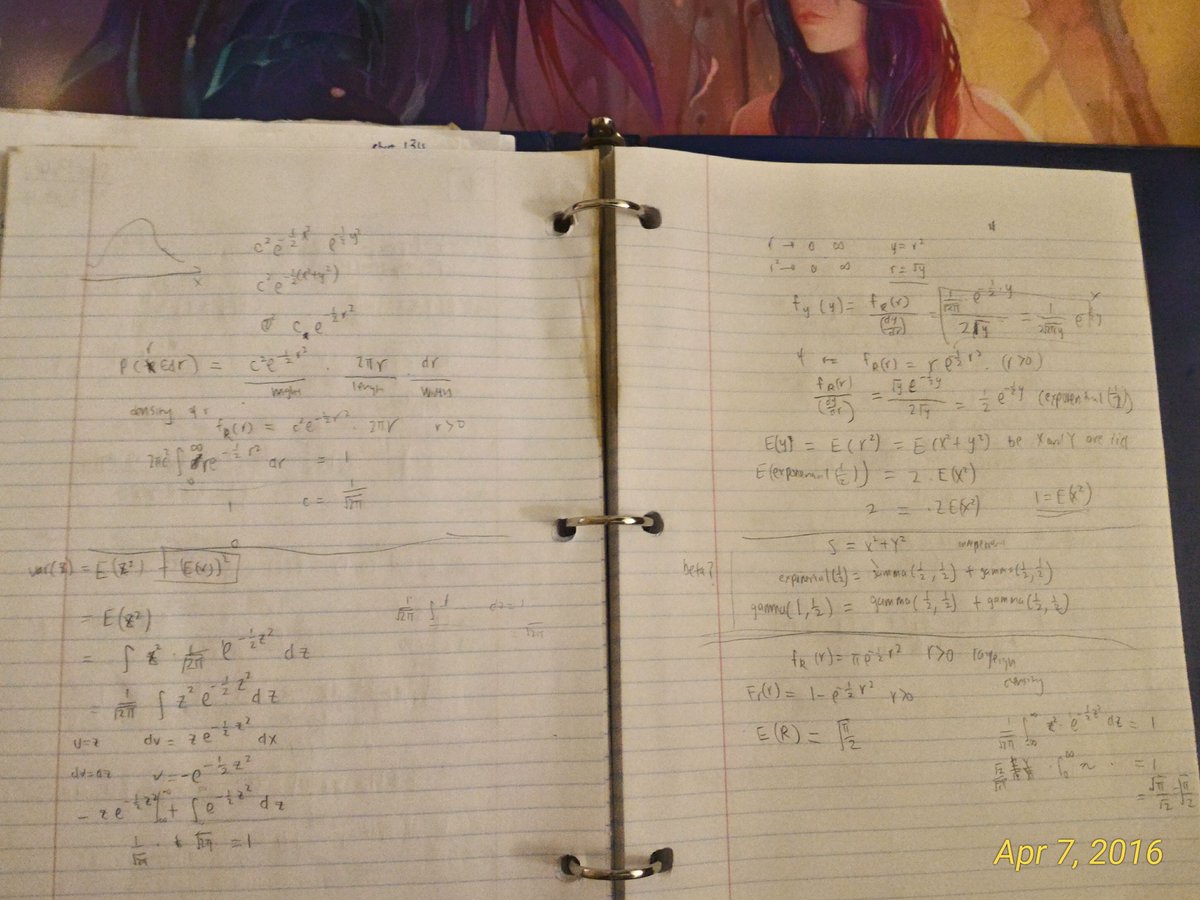 x
c² e^{-½x²} e^{-½y²}
c² e^{-½(x²+y²)}
c e^{-½r²}
P(r ∈ dr) = c² e^{-½r²} · 2πr · dr
height length width
density of r
f_R(r) = c² e^{-½r²} · 2πr r>0
2πc² ∫₀^∞ r e^{-½r²} dr = 1
1 c = 1/√2π
0
var(z) = E(z²) + (E(x))²
= E(z²)
= ∫ z² · 1/√2π e^{-½z²} dz
= 1/√2π ∫ z² e^{-½z²} dz
u=z dv = z e^{-½z²} dx
v = -e^{-½z²}
- z e^{-½z²} + ∫ e^{-½z²} dz
1/√2π · √2π = 1
r → 0 ∞ y = r²
r² → 0 ∞ r = √y
f_Y(y) = f_R(r)/(dy/dr) = 1/√2π · e^{-½·y} / 2√y = 1/2√2πy e^{-½y}
f_R(r) = r e^{-½r²} (r>0)
f_R(r)/(dy/dr) = √y e^{-½y}/2√y = ½ e^{-½y} (exponential(½))
E(y) = E(r²) = E(x²+y²) bc X and Y are iid
E(exponential(½)) = 2 · E(X²)
2 = 2E(X²) 1 = E(X²)
S = X²+Y²
beta?
exponential(½) = gamma(½,½) + gamma(½,½)
gamma(1,½) = gamma(½,½) + gamma(½,½)
f_R(r) = r e^{-½r²} r>0
F_r(r) = 1 - e^{-½r²} r>0
E(R) = √π/2
1/√2π ∫_{-∞}^∞ z² · e^{-½z²} dz = 1
= √π/√2 = √π/2
Apr 7, 2016